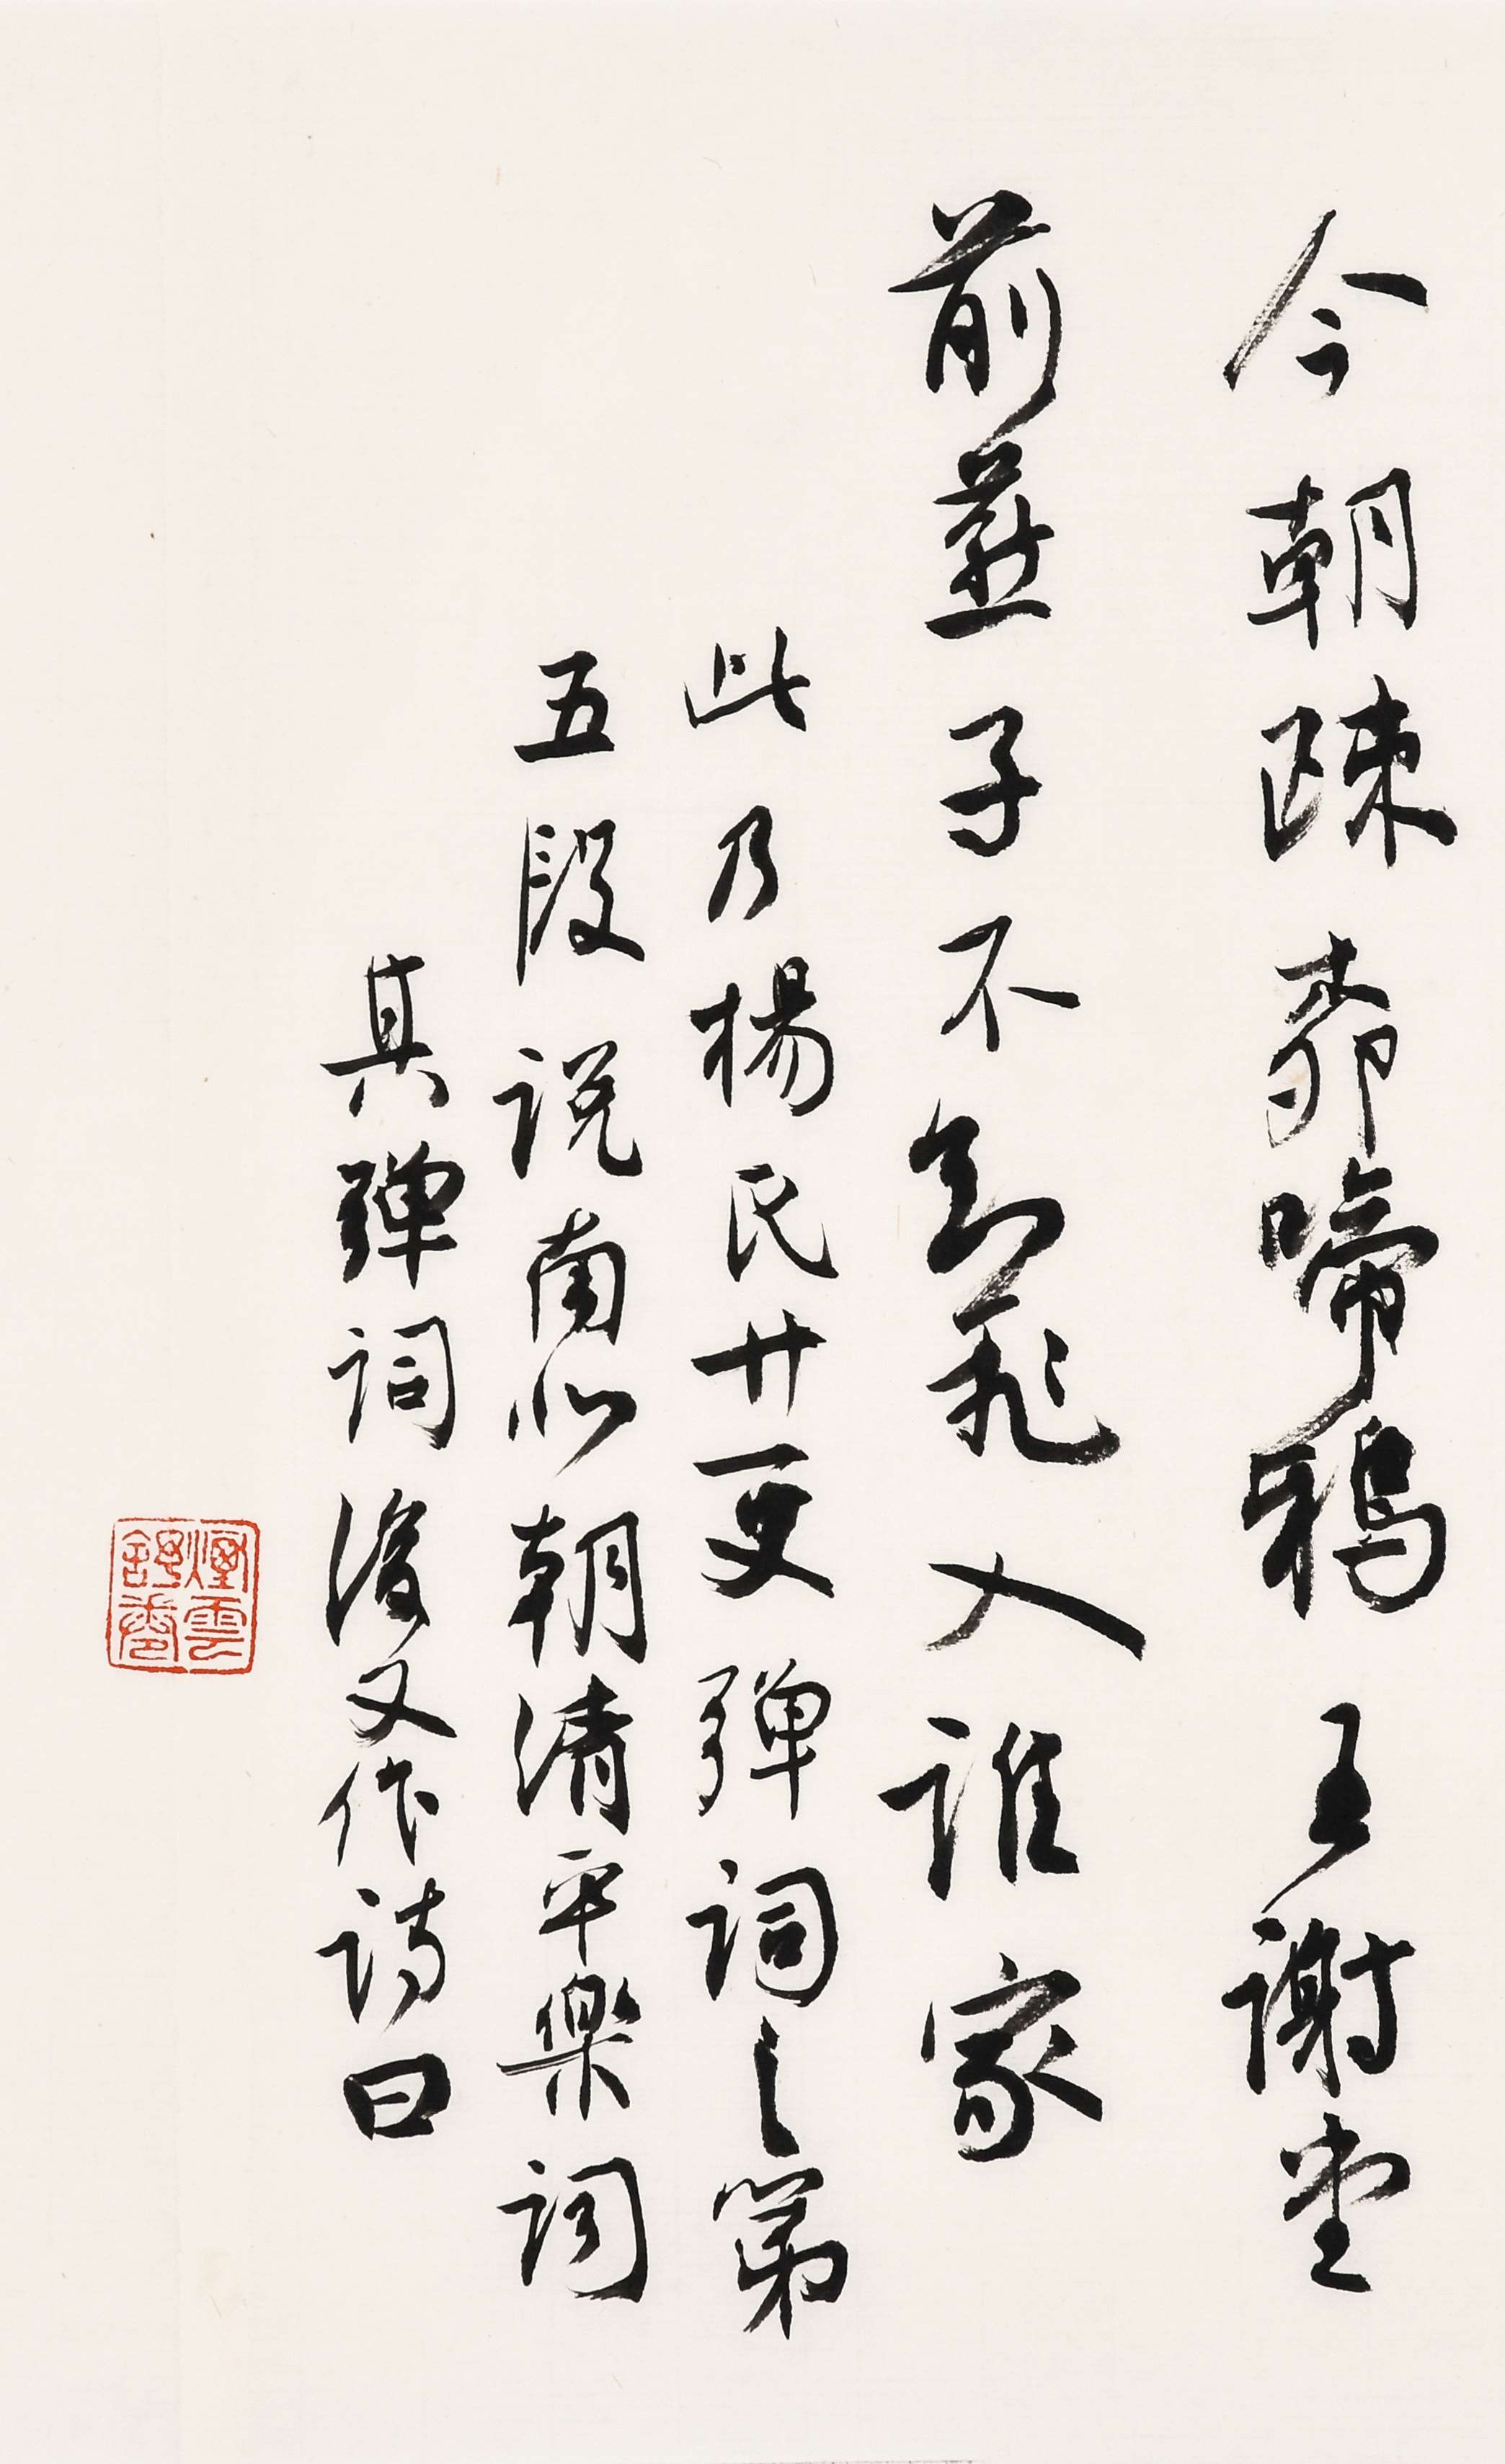 今朝疎栁啼鴉王謝堂
前燕子不知飛入誰家
此乃楊氏廿一史弹詞之第
五段说南北朝清平樂词
其弹词後又作诗曰
煙雲